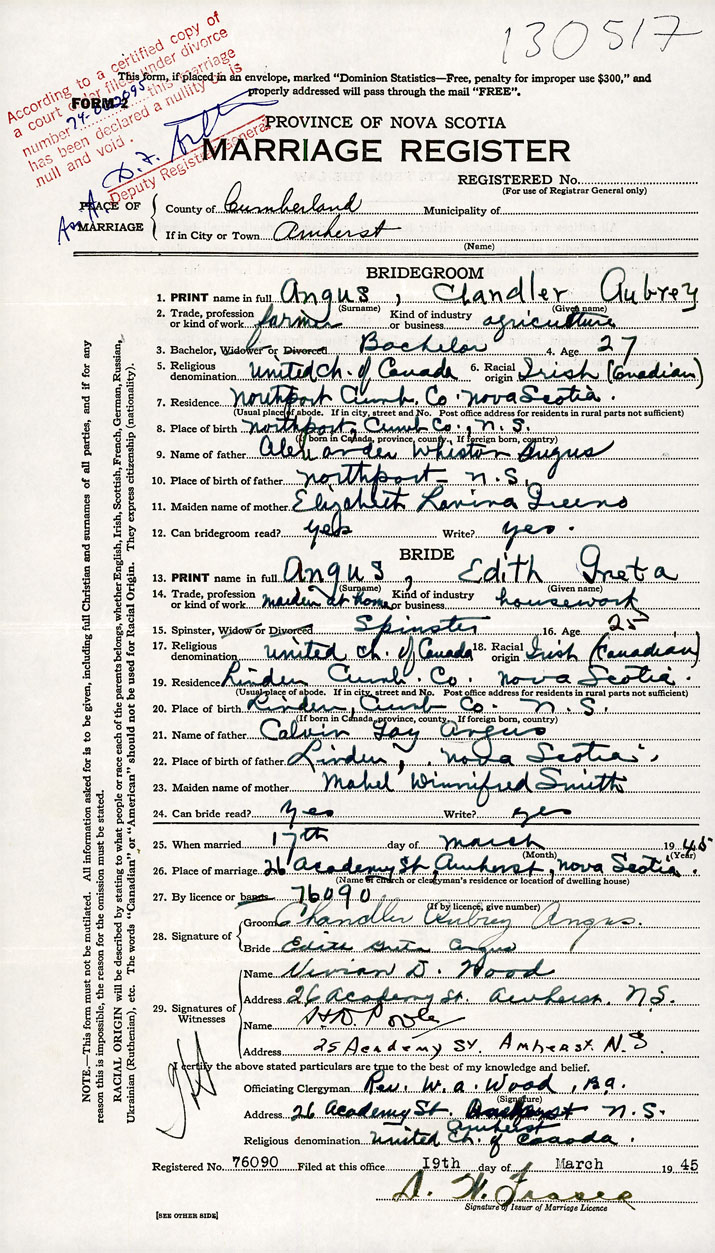 130517
According to a certified copy of
a court order filed under divorce
number 74-002095 this marriage
has been declared a nullity & is
null and void.
Deputy Registrar General
This form, if placed in an envelope, marked "Dominion Statistics—Free, penalty for improper use $300," and
properly addressed will pass through the mail "FREE".
FORM 2
PROVINCE OF NOVA SCOTIA
MARRIAGE REGISTER
REGISTERED No.
(For use of Registrar General only)
PLACE OF MARRIAGE
County of Cumberland Municipality of
If in City or Town Amherst
(Name)
BRIDEGROOM
1. PRINT name in full Angus, Chandler Aubrey
(Surname) (Given name)
2. Trade, profession or kind of work farmer Kind of industry or business agriculture
3. Bachelor, Widower or Divorced Bachelor 4. Age 27
5. Religious denomination United Ch. of Canada 6. Racial origin Irish (Canadian)
7. Residence Northport Cumb. Co. Nova Scotia.
(Usual place of abode. If in city, street and No. Post office address for residents in rural parts not sufficient)
8. Place of birth Northport, Cumb Co., N.S.
(If born in Canada, province, county. If foreign born, country)
9. Name of father Alexander Whiston Angus
10. Place of birth of father Northport - N.S.
11. Maiden name of mother Elizabeth Lavina Greeno
12. Can bridegroom read? yes Write? yes.
BRIDE
13. PRINT name in full Angus, Edith Greta
(Surname) (Given name)
14. Trade, profession or kind of work maiden at home Kind of industry or business housework
15. Spinster, Widow or Divorced Spinster 16. Age 25
17. Religious denomination United Ch. of Canada 18. Racial origin Irish (Canadian)
19. Residence Linden Cumb. Co. Nova Scotia.
(Usual place of abode. If in city, street and No. Post office address for residents in rural parts not sufficient)
20. Place of birth Linden, Cumb Co. N.S.
(If born in Canada, province, county. If foreign born, country)
21. Name of father Calvin Gay Angus
22. Place of birth of father Linden, Nova Scotia.
23. Maiden name of mother Mabel Winnifred Smith
24. Can bride read? yes Write? yes
25. When married 17th day of March 1945
(Month) (Year)
26. Place of marriage 26 Academy St, Amherst, Nova Scotia.
(Name of church or clergyman's residence or location of dwelling house)
27. By licence or banns 76090
(If by licence, give number)
28. Signature of
Groom Chandler Aubrey Angus.
Bride Edith Greta Angus
29. Signatures of Witnesses
Name Vivian D. Wood
Address 26 Academy St. Amherst. N.S.
Name
Address 25 Academy St. Amherst. N.S.
I certify the above stated particulars are true to the best of my knowledge and belief.
Officiating Clergyman Rev. W. A. Wood, B.A.
(Signature)
Address 26 Academy St. Amherst N.S.
Amherst
Religious denomination United Ch. of Canada.
Registered No. 76090 Filed at this office 19th day of March 1945
Signature of Issuer of Marriage Licence
[SEE OTHER SIDE]
NOTE.—This form must not be mutilated. All information asked for is to be given, including full Christian and surnames of all parties, and if for any
reason this is impossible, the reason for the omission must be stated.
RACIAL ORIGIN will be described by stating to what people or race each of the parents belongs, whether English, Irish, Scottish, French, German, Russian,
Ukrainian (Ruthenian), etc. The words "Canadian" or "American" should not be used for Racial Origin. They express citizenship (nationality).